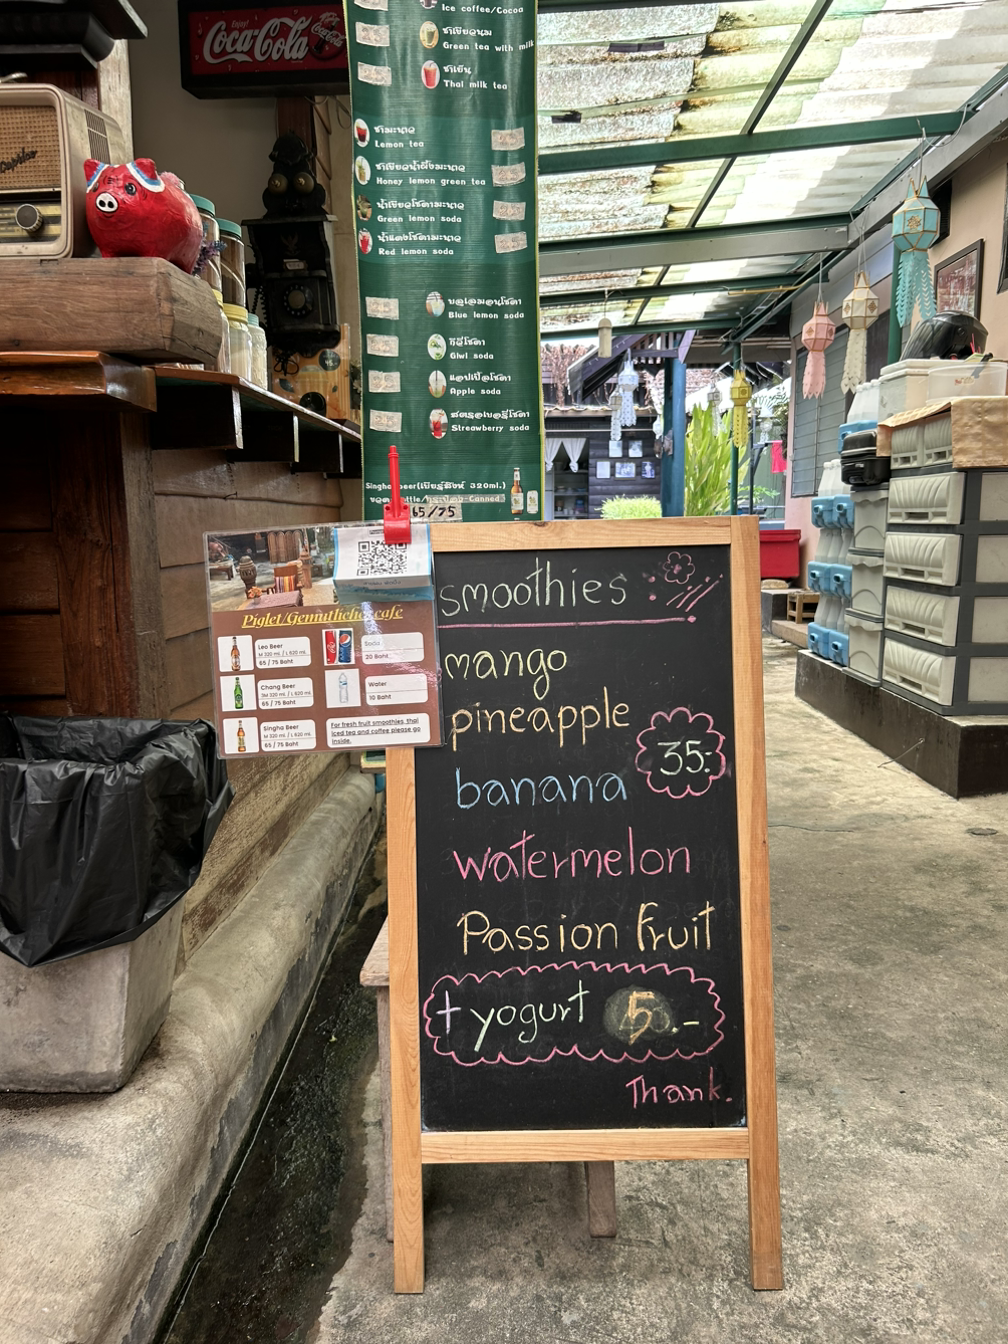 Enjoy!
Coca-Cola
Coca-Cola
Ice coffee/Cocoa
ชาเขียวนม
Green tea with milk
ชาเย็น
Thai milk tea
ชามะนาว
Lemon tea
ชาเขียวน้ำผึ้งมะนาว
Honey lemon green tea
น้ำเขียวโซดามะนาว
Green lemon soda
น้ำแดงโซดามะนาว
Red lemon soda
บลูเลมอนโซดา
Blue lemon soda
กีวีโซดา
Giwi soda
แอปเปิ้ลโซดา
Apple soda
สตรอเบอรี่โซดา
Strewberry soda
Singha beer(เบียร์สิงห์ 320ml.)
Canned
65/75
Piglet/Gemutliches cafe
Leo Beer
M 320 ml. / L 620ml.
65 / 75 Baht
Soda
20 Baht
Chang Beer
M 320 ml. / L 620ml.
65 / 75 Baht
Water
10 Baht
Singha Beer
M 320 ml. / L 620ml.
65 / 75 Baht
For fresh fruit smoothies, thai
iced tea and coffee please go
inside.
smoothies
mango
pineapple
35.-
banana
watermelon
Passion fruit
+ yogurt 5.-
Thank.